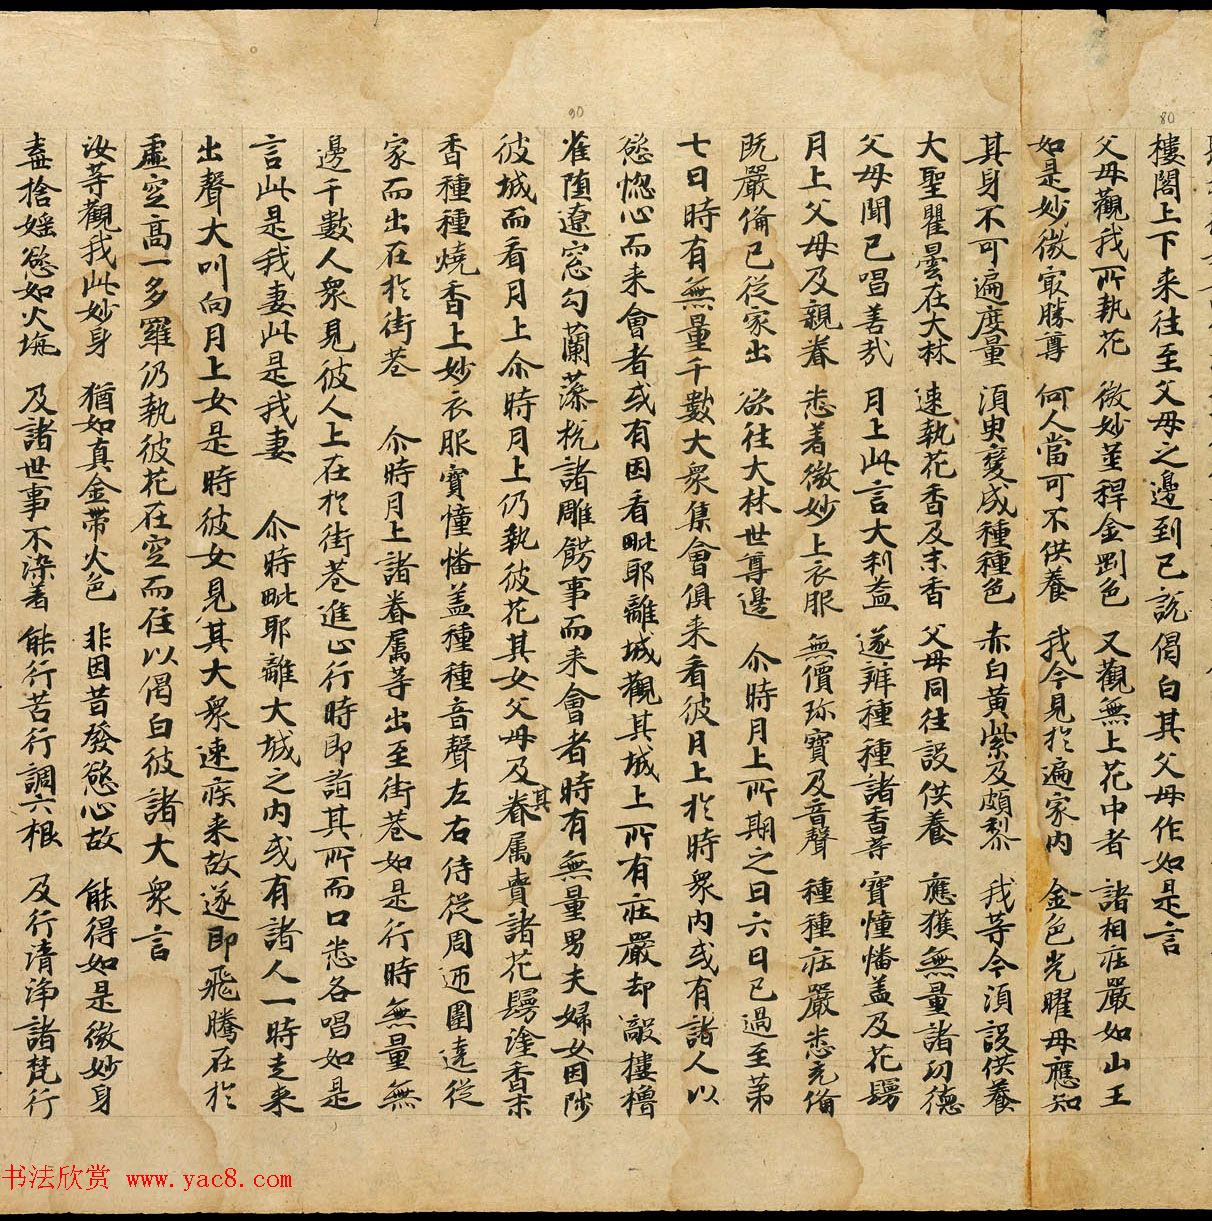 80
樓閣上下来往至父母之邊到已說偈白其父母作如是言
父母觀我所執花 微妙莖稈金剛色 又觀無上花中者 諸相庄嚴如山王
如是妙微冣勝尊 何人當可不供養 我今見於遍家内 金色光曜母應知
其身不可遍度量 須臾變成種種色 赤白黃紫及頗黎 我等今須設供養
大聖瞿曇在大林 速執花香及末香 父母同往設供養 應獲無量諸功德
父母聞已唱善哉 月上此言大利益 遂辦種種諸香等 寶憧幡盖及花鬘
月上父母及親眷 悉著微妙上衣服 無價珎寶及音聲 種種庄嚴悉充俻
既嚴俻已從家出 欲往大林世尊邊 尒時月上所期之日六日已過至第
七日時有無量千數大衆集會俱来看彼月上於時衆内或有諸人以
慾惚心而来會者或有因看毗耶離城觀其城上所有庄嚴却敵摟櫓
90
雀堕遼窓勾蘭藻梲諸雕餝事而来會者時有無量男夫婦女因陟
彼城而看月上尒時月上仍執彼花其女父母及其眷属賷諸花鬘塗香末
香種種燒香上妙衣服寶憧幡盖種種音聲左右侍從周迊圍遶從
家而出在於街巷 尒時月上諸眷属等出至街巷如是行時無量無
邊千數人衆見彼人上在於街巷進止行時即詣其所而口悉各唱如是
言此是我妻此是我妻 尒時毗耶離大城之内或有諸人一時走来
出聲大叫向月上女是時彼女見其大衆速疾来故遂即飛騰在於
虛空高一多羅仍執彼花在空而住以偈白彼諸大衆言
汝等觀我此妙身 猶如真金帶火色 非因昔發慾心故 能得如是微妙身
盍捨婬慾如火坑 及諸世事不染著 能行苦行調六根 及行清淨諸梵行
书法欣赏 www.yac8.com